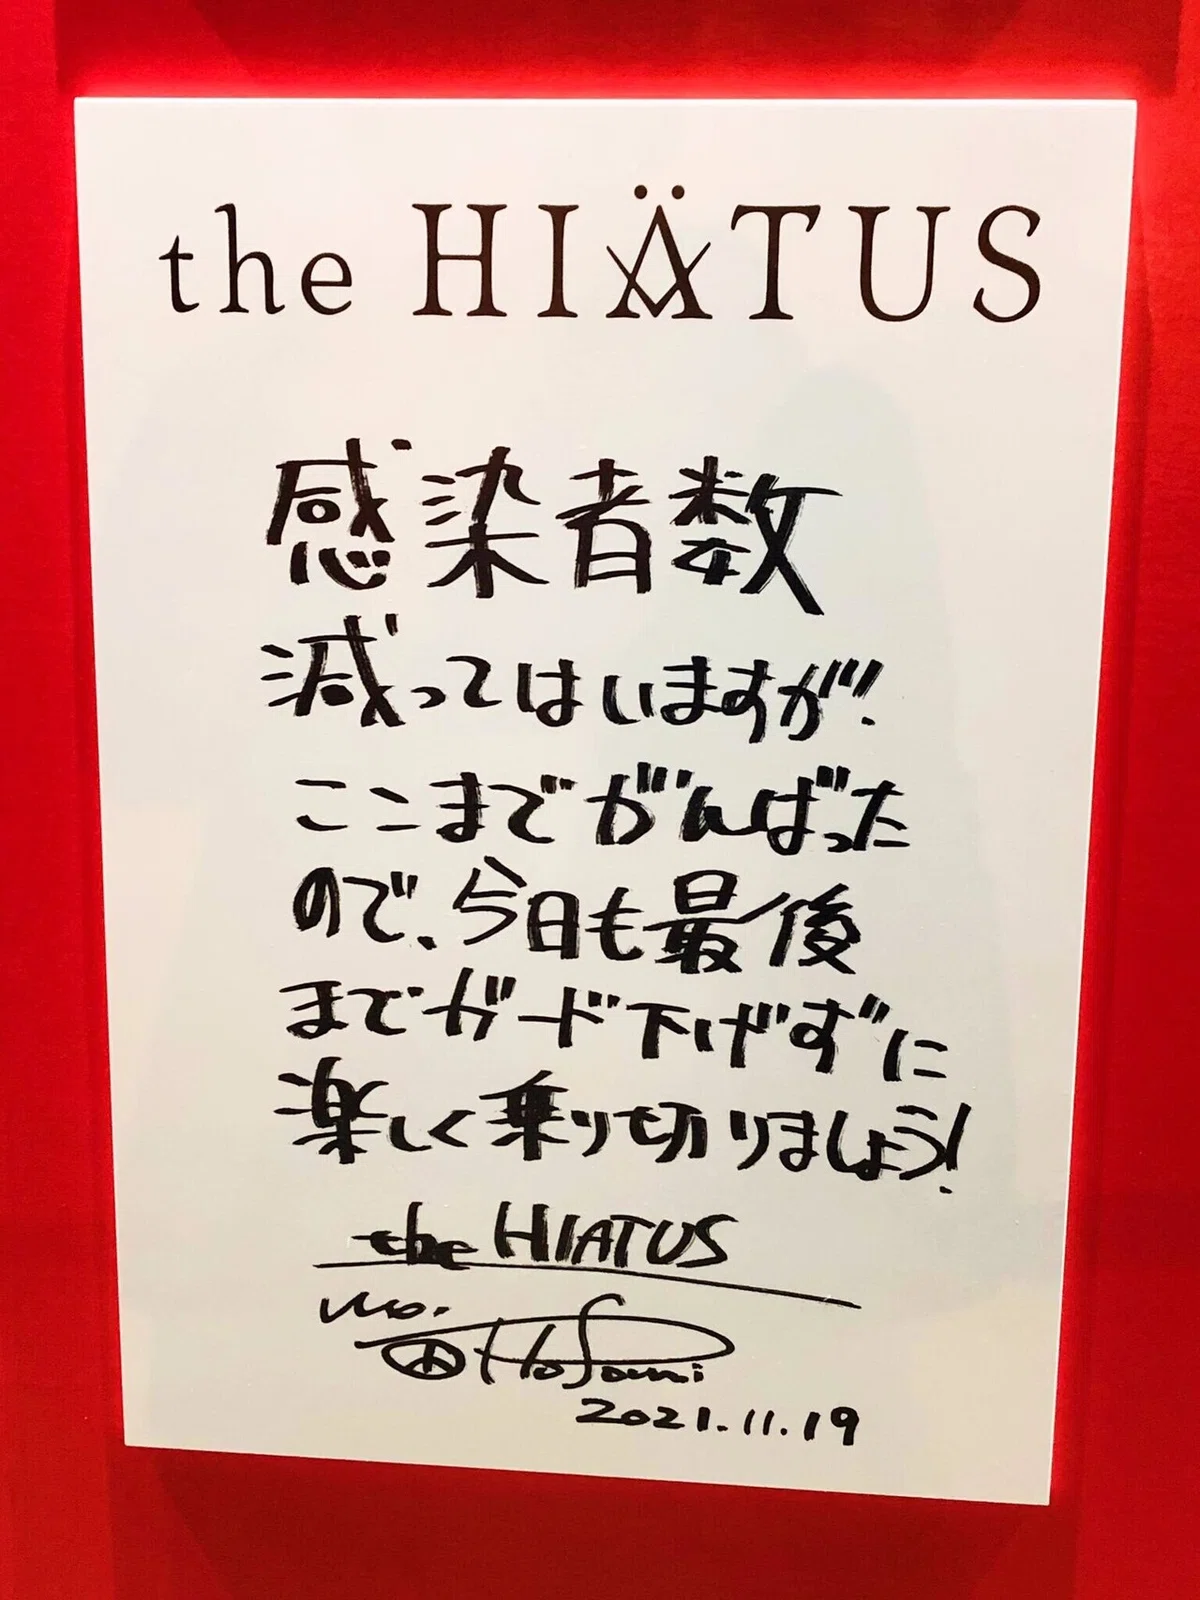 the HIÄTUS
感染者数
減ってはいますが!!
ここまでがんばった
ので、今日も最後
までガード下げずに
楽しく乗り切りましょう!
the HIATUS
Hosomi
2021.11.19